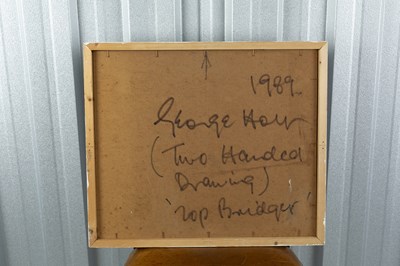 1989
George Holt
(Two Handed
Drawing)
'Top Bridges'